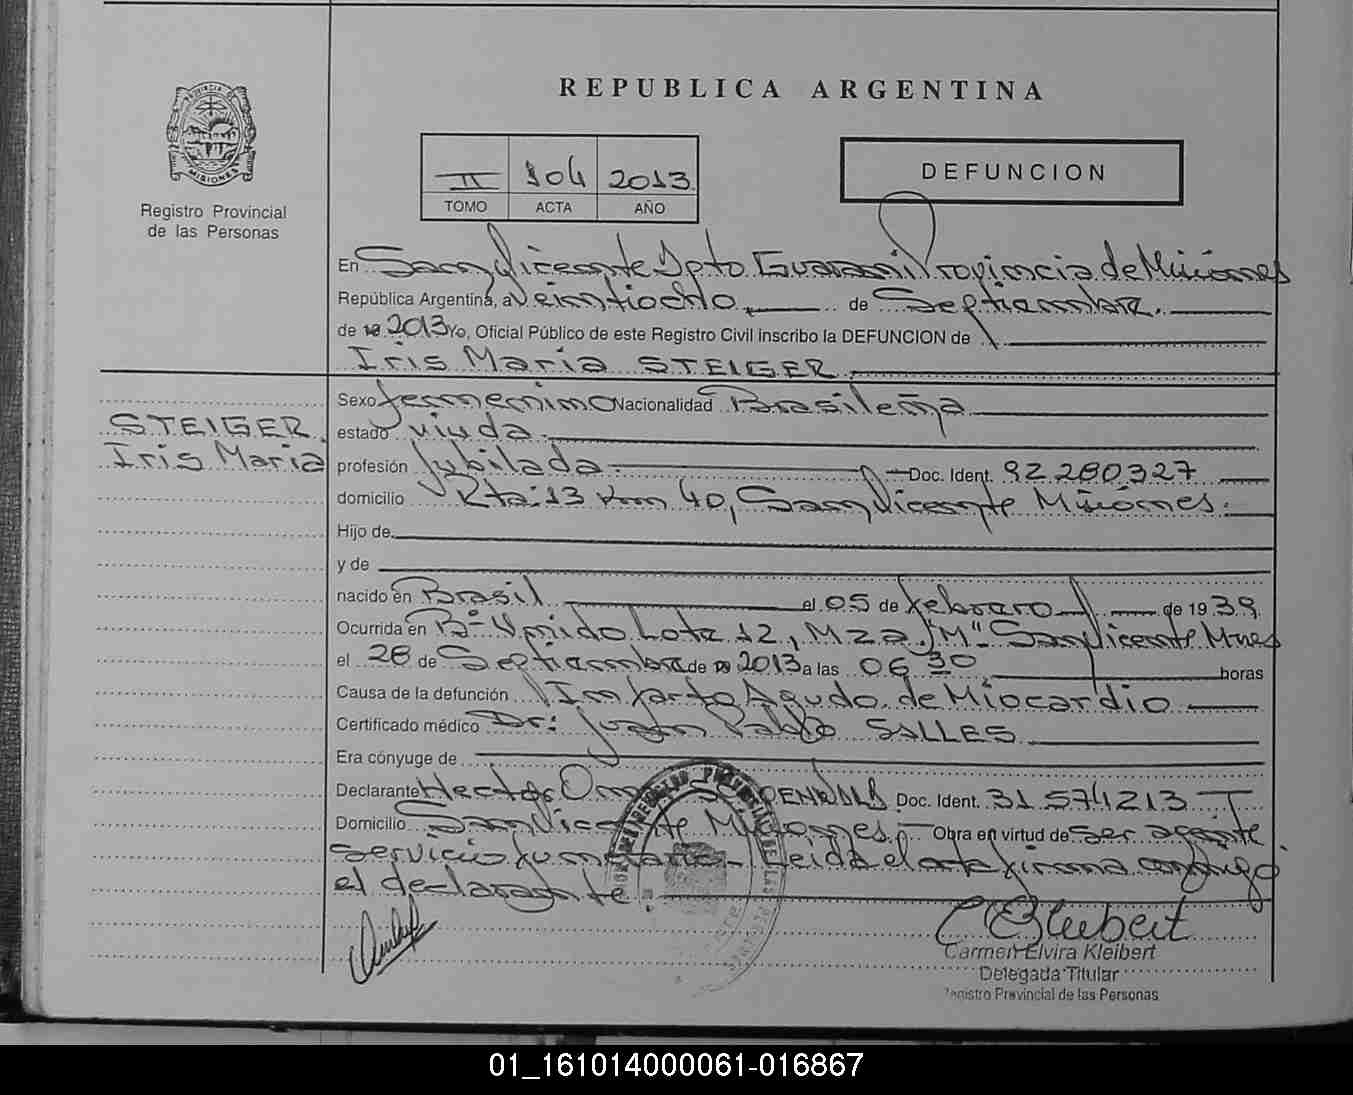 REPUBLICA ARGENTINA
PROVINCIA DE
MISIONES
Registro Provincial
de las Personas
II 104 2013
TOMO ACTA AÑO
DEFUNCION
En San Vicente Dpto. Guarani Provincia de Misiones
República Argentina, a Veintiocho de Septiembre.
de 19 2013 Yo, Oficial Público de este Registro Civil inscribo la DEFUNCION de
Iris María STEIGER
STEIGER
Iris Maria
Sexo femenino Nacionalidad Brasileña
estado viuda.
profesión Jubilada Doc. Ident. 92 280.327
domicilio Rta: 13 Km 40, San Vicente Misiones.
Hijo de
y de
nacido en Brasil el 05 de febrero de 1939
Ocurrida en Bº Unido Lote 12, Mza "M" San Vicente Mnes
el 28 de Septiembre de 19 2013 a las 06 30 horas
Causa de la defunción Infarto Agudo de Miocardio
Certificado médico Dr: Juan Pablo SALLES
Era cónyuge de
Declarante Hector Doc. Ident. 31.574213
Domicilio San Vicente Misiones. Obra en virtud de Ser agente
servicio funerario - Leida el acta firma conmigo
el declarante.
C E Kleibert
Carmen Elvira Kleibert
Delegada Titular
Registro Provincial de las Personas
01_161014000061-016867